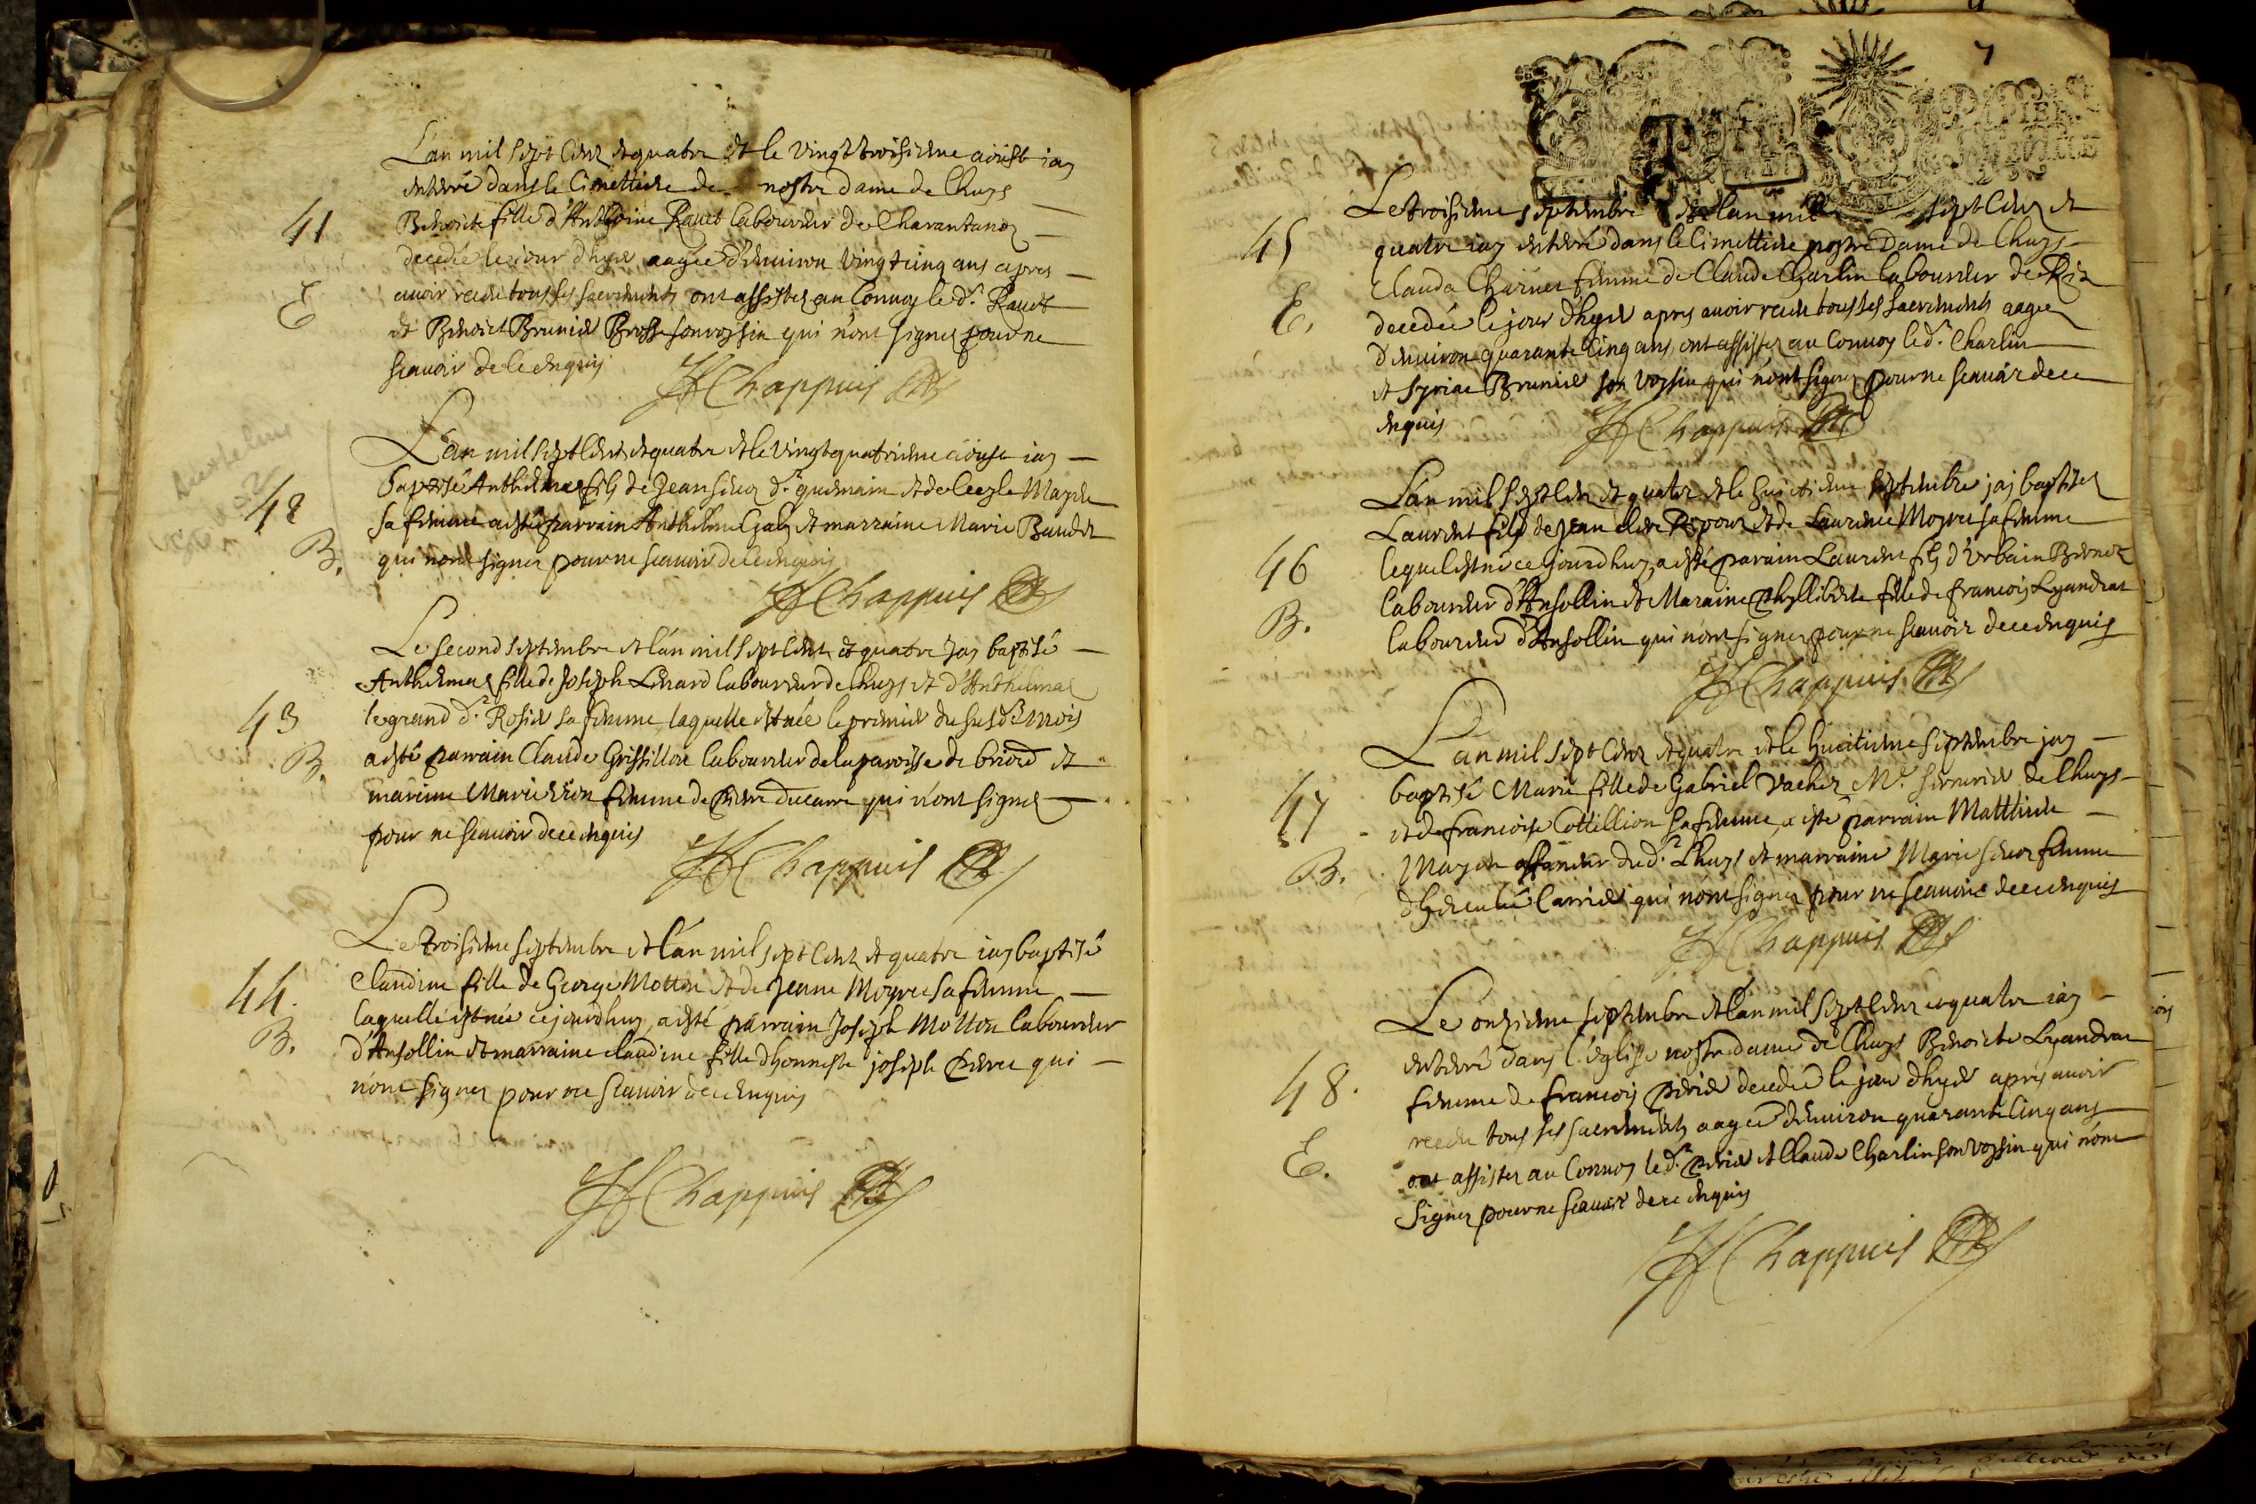 L'an mil sept cent et quatre et le vingt troisieme aoust iay
enterré dans le Cimettiere de nostre dame de Lhuys
41
Benoicte fille d'Anthoine Ravet laboureur de Charantanoz
decedée le jour dhyer aagée d'environ vingt cinq ans apres
E
avoir receu tous ses sacrements ont assistez au Convoy le d.t Ravet
et Benoict Brunier Brosse son voysin qui n'ont signez pour ne
scavoir de ce enquis
Chappuis
L'an mil sept cent et quatre et le vingt quatrieme aoust iay
42
baptisé Anthelme fils de Jean d.t et de Mayre
sa femme a esté parrain Anthelme Gay et marraine Marie Baudet
B.
qui n'ont signez pour ne scavoir de ce enquis
Chappuis
Le second septembre et l'an mil sept cent et quatre iay baptisé
Anthelmaz fille de Joseph Lénard laboureur de Lhuys et d'Anthelmaz
43
legrand d.t Rosier sa femme laquelle est née le premier du susd.t mois
B.
a esté parrain Claude Grissillon laboureur de la paroisse de briord et
mareine Marie femme de Pierre qui n'ont signez
pour ne scavoir de ce enquis
Chappuis
Le troisieme septembre et l'an mil sept cent et quatre iay baptisé
44.
Claudine fille de George Motton et de Jeanne Moyret sa femme
laquelle est née ce jourdhuy, a esté parrain Joseph Motton laboureur
B.
d'Ansollin et marraine claudine fille d'honneste joseph Pierre qui
n'ont signez pour ne scavoir de ce enquis
Chappuis
7
Le troisieme septembre et l'an mil sept cent et
45
quatre iay enterré dans le Cimettiere nostre Dame de Lhuys
Clauda Charnet femme de Claude Charlin laboureur de Rix
E.
decedée le jour dhyer apres avoir receu tous ses sacrements aagée
d'environ quarante Cinq ans, ont assistez au Convoy le d.t Charlin
et Syriac Brunier son voysin qui n'ont signez pour ne scavoir de ce
enquis
Chappuis
L'an mil sept cent et quatre et le huictieme septembre jay baptisez
Laurent fils de Jean et de Laurence Moyret sa femme
46
lequel est né ce jourdhuy, a esté parain Laurent fils d'Urbain Bernet
laboureur d'Ansollin et Maraine Phylliberte fille de francois Lyandrat
B.
laboureur d'Ansollin qui n'ont signez pour ne scavoir de ce enquis
Chappuis
L'an mil sept cent et quatre et le huictieme septembre jay
baptisé Marie fille de Gabriel Vachez M.e serrurier de Lhuys
47
et de francoise Cottillion sa femme, a esté parrain Matthieu
Mayet dud.t Lhuys et marraine Marie femme
B.
d'Herculé Carrier qui n'ont signez pour ne scavoir de ce enquis
Chappuis
Le onzieme septembre et l'an mil sept cent et quatre iay
enterré dans l'eglise nostre dame de Lhuys Benoicte Lyandrat
48.
femme de francois Perier decedée le jour dhyer apres avoir
receu tous ses sacrements aagée d'environ quarante Cinq ans
E.
ont assistez au Convoy le d.t Perier et Claude Charlin son voysin qui n'ont
signez pour ne scavoir de ce enquis
Chappuis